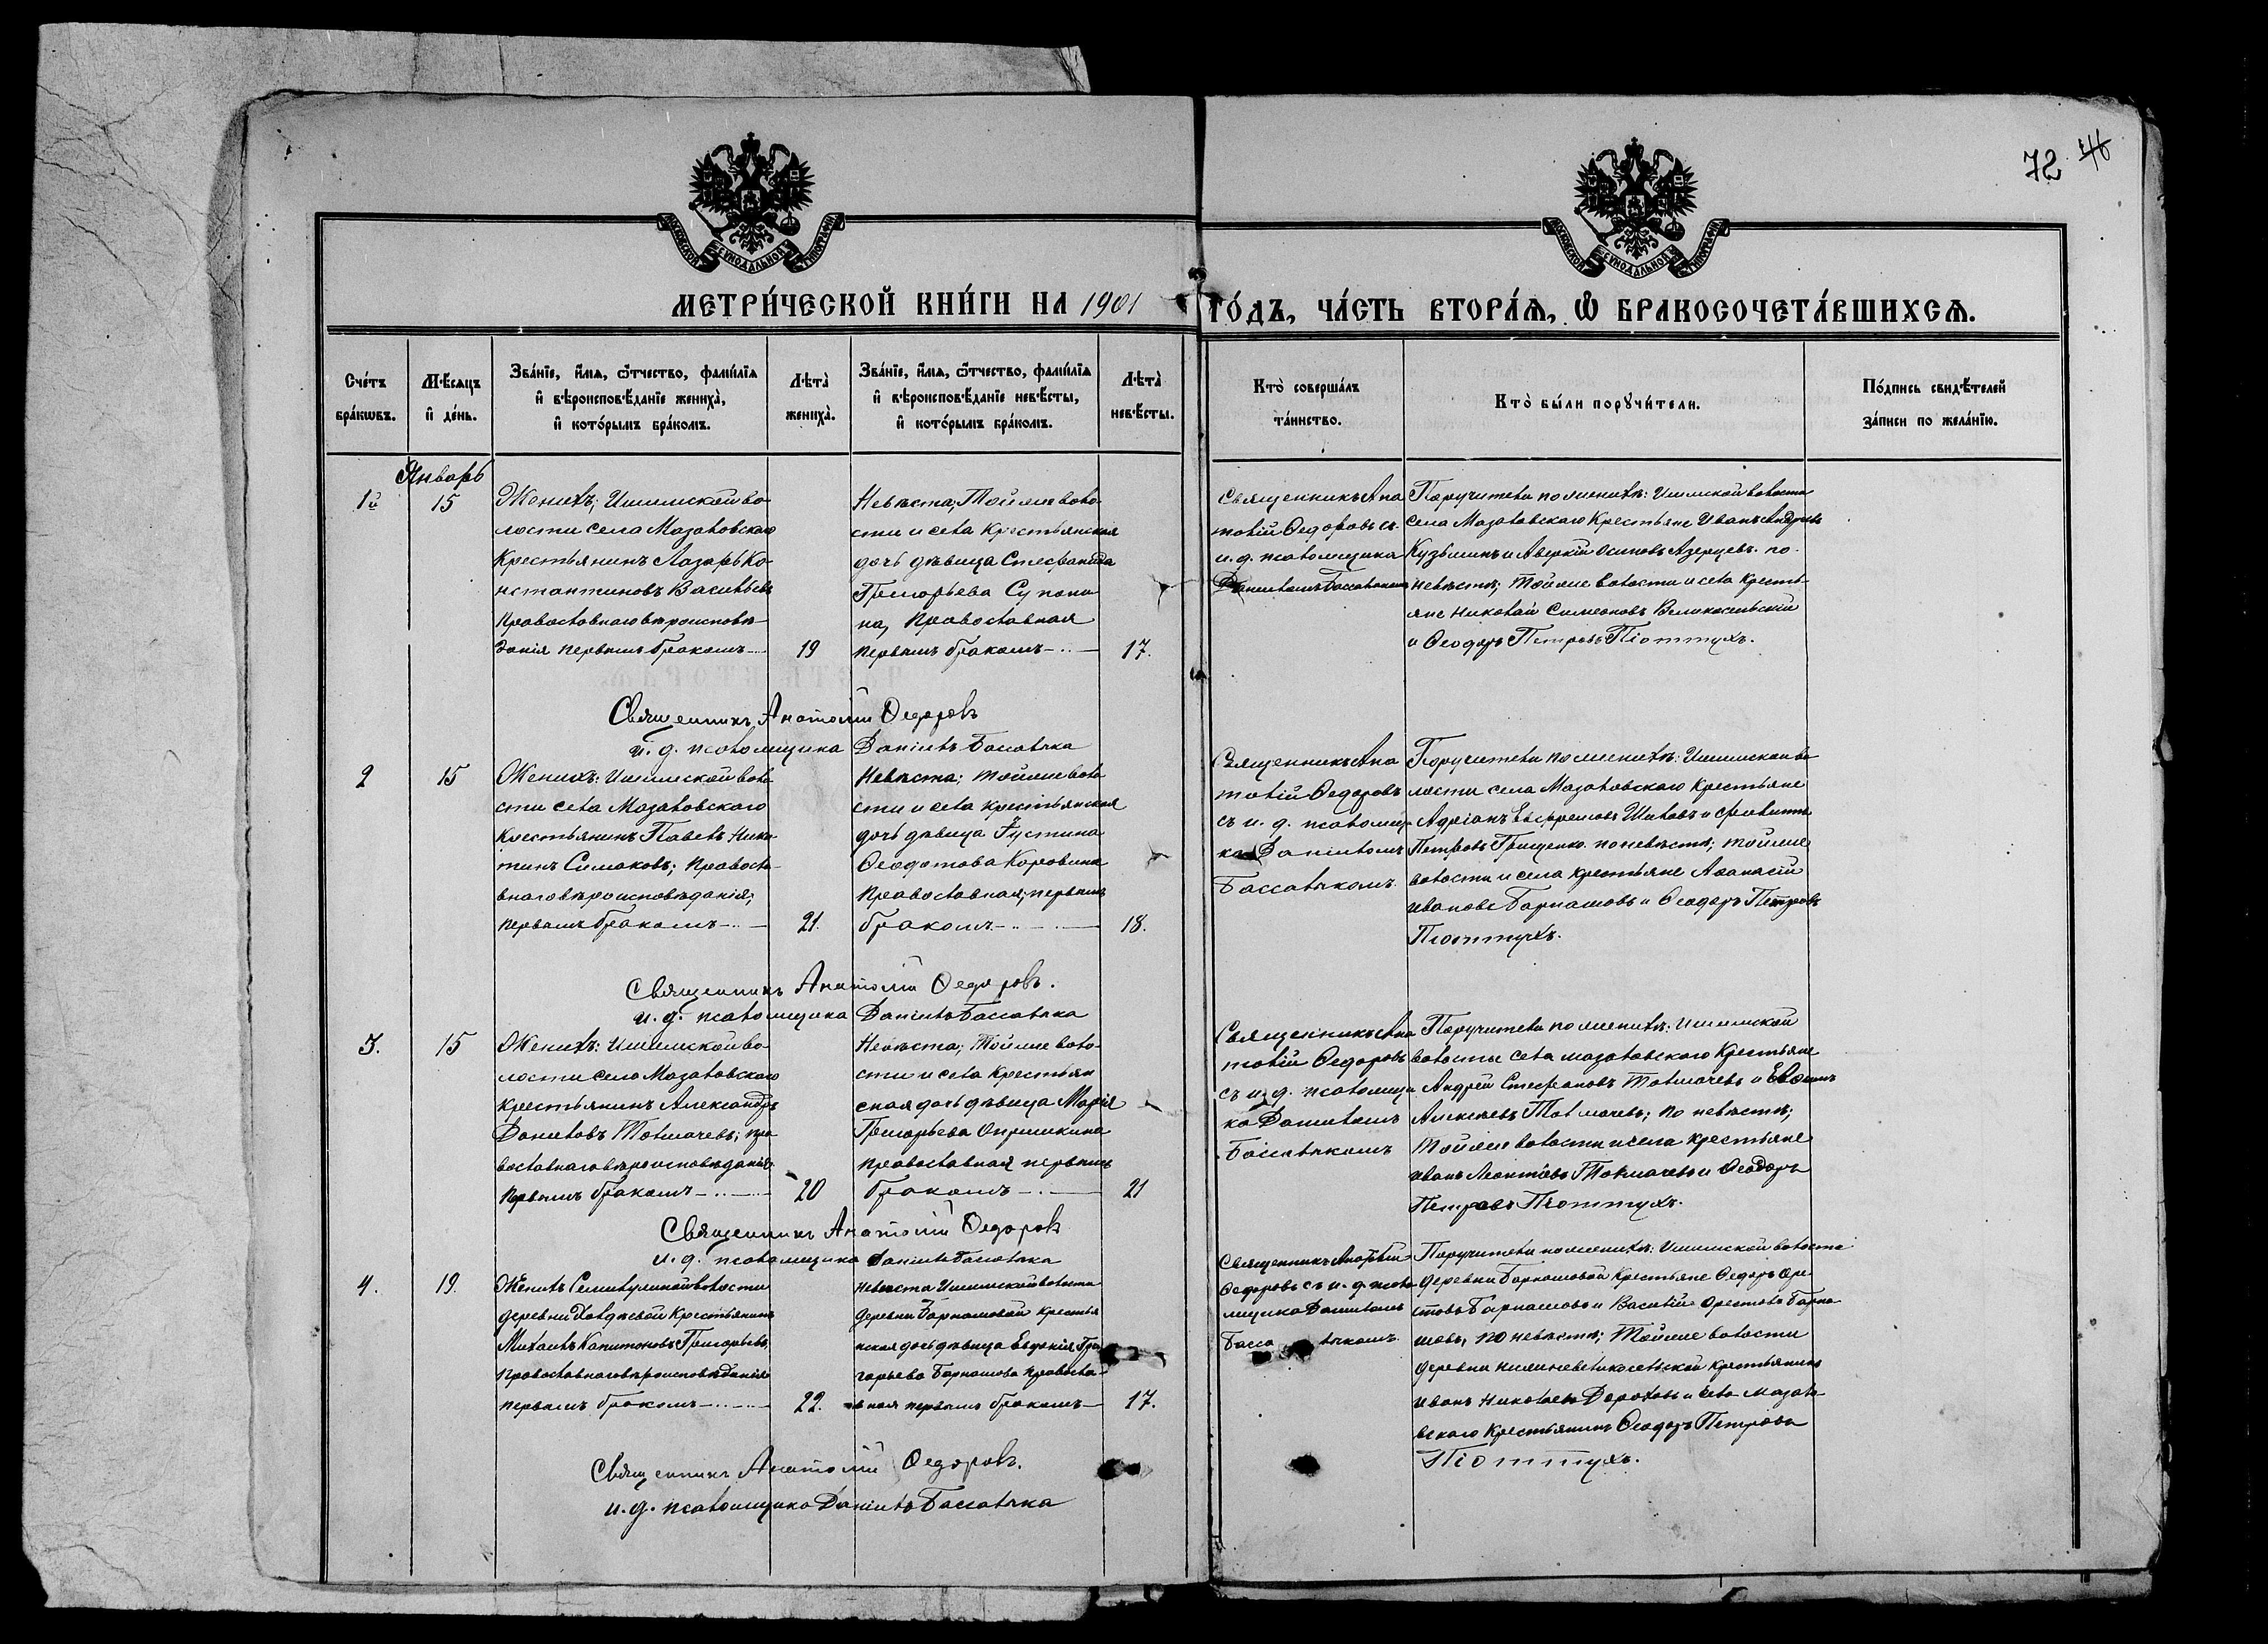 72 46
МОСКОВСКОЙ СѴНОДАЛЬНОЙ ТИПОГРАФІИ
МОСКОВСКОЙ СѴНОДАЛЬНОЙ ТИПОГРАФІИ
МЕТРИ́ЧЕСКОЙ КНИ́ГИ НА 1901 ГО́ДЪ, ЧА́СТЬ ВТОРА́Ѧ, Ѽ БРАКОСОЧЕТА́ВШИХСѦ.
Сче́тъ бра́кѡвъ.
Мѣ́сяцъ и҆ де́нь.
Зва́нїе, и҆́мѧ, ѻ҆́тчество, фами́лїѧ
и҆ вѣроисповѣ́данїе женихà,
и҆ кото́рымъ бра́комъ.
Лѣта̀ женихà.
Зва́нїе, и҆́мѧ, ѻ҆́тчество, фами́лїѧ
и҆ вѣроисповѣ́данїе невѣ́сты,
и҆ кото́рымъ бра́комъ.
Лѣта̀ невѣ́сты.
Кто̀ соверша́лъ та́инство.
Кто̀ бы́ли порꙋчи́тели.
По́дпись свидѣ́телей за́писи по жела́нїю.
Январь
1й
15
Женихъ; Ишимской во-
лости села Мазаловскаго
Крестьянинъ Лазарь Ко-
нстантиновъ Васильевъ
Православнаго вѣроисповѣ-
данія первымъ бракомъ
19
Невѣста; Той же воло-
сти и села Крестьянская
дочь дѣвица Стефанида
Григорьева Супони-
на, Православная
первымъ бракомъ
17.
Священникъ Ана-
толій Ѳедоровъ съ
и. д. псаломщика
Даниломъ Бассалыкомъ
Поручители по женихѣ: Ишимской волости
села Мазаловскаго Крестьяне Иванъ Андреевъ
Кузьминъ и Аверкій Осиповъ Азерцевъ. по
невѣстѣ; Той же волости и села Кресть-
яне Николай Симеоновъ Великосельскій
и Ѳеодоръ Петровъ Піоттухъ.
Священникъ Анатолій Ѳедоровъ
и. д. псаломщика Даніилъ Бассалыка
2
15
Женихъ: Ишимской воло-
сти села Мазаловскаго
Крестьянинъ Павелъ Ники-
тинъ Симаковъ; Правосла-
внаго вѣроисповѣданія;
первымъ бракомъ
21.
Невѣста; той же воло-
сти и села крестьянская
дочь дѣвица Іустина
Ѳеодотова Коровина
Православная; первымъ
бракомъ
18.
Священникъ Ана-
толій Ѳедоровъ
съ и. д. псаломщи-
ка Даніиломъ
Бассалыкомъ.
Поручители по женихѣ: Ишимской во-
лости села Мазаловскаго Крестьяне
Адріанъ Ефремовъ Шиловъ и Филиппъ
Петровъ Грищенко. по невѣстѣ; той же
волости и села крестьяне Аѳанасій
Ивановъ Барнашовъ и Ѳеодоръ Петровъ
Піоттухъ.
Священникъ Анатолій Ѳедоровъ.
и. д. псаломщика Даніилъ Бассалыка
3.
15
Женихъ: Ишимской во-
лости села Мазаловскаго
крестьянинъ Александръ
Даниловъ Толмачевъ; пра-
вославнаго вѣроисповѣданія
первымъ бракомъ
20
Невѣста; Той же воло-
сти и села Крестьян-
ская дочь дѣвица Марія
Григорьева
православная первымъ
бракомъ
21
Священникъ Ана-
толій Ѳедоровъ
съ и. д. псаломщи-
ка Даниломъ
Бассалыкомъ
Поручители по женихѣ: Ишимской
волости села Мазаловскаго Крестьяне
Андрей Стефановъ Толмачевъ и
Алексѣевъ Толмачевъ; по невѣстѣ;
Той же волости и села крестьяне
Иванъ Леонтьевъ Толмачевъ и Ѳеодоръ
Петровъ Піоттухъ.
Священникъ Анатолій Ѳедоровъ
и. д. псаломщика Даніилъ Бассалыка
4.
19.
Женихъ волости
деревни Крестьянинъ
Михаилъ Капитоновъ Григорьевъ,
Православнаго вѣроисповѣданія
первымъ бракомъ
22.
Невѣста Ишимской волости
деревни Барнашовой крестья-
нская дочь дѣвица Евдокія Гри-
горьева Барнашова Правосла-
вная первымъ бракомъ
17.
Священникъ Анатолій
Ѳедоровъ съ и. д. псало-
мщика Даниломъ
Бассалыкомъ.
Поручители по женихѣ: Ишимской волости
деревни Барнашовой Крестьяне Ѳедоръ Оре-
стовъ Барнашовъ и Василій Орестовъ Барна-
шовъ, по невѣстѣ; Той же волости
деревни Нижневеликосельской крестьянинъ
Иванъ Николаевъ Дороховъ и села Мазало-
вскаго Крестьянинъ Ѳеодоръ Петровъ
Піоттухъ.
Священникъ Анатолій Ѳедоровъ.
и. д. псаломщика Даніилъ Бассалыка